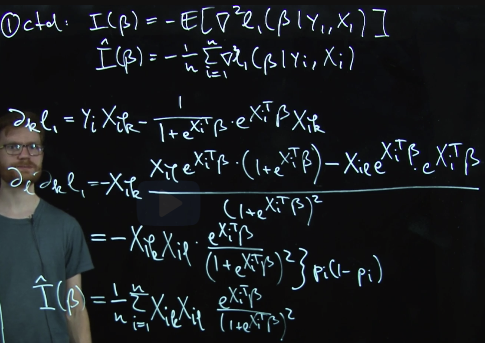 ① ctd: I(β) = -E[∇²ℓ₁(β|Y₁, X₁)]
Î(β) = -1/n Σᵢ₌₁ⁿ ∇²ℓ₁(β|Yᵢ, Xᵢ)
∂ₖℓ₁ = YᵢXᵢₖ - 1/(1+e^{XᵢᵀΒ}) · e^{Xᵢᵀβ} Xᵢₖ
∂ₗ∂ₖℓ₁ = -Xᵢₖ (Xᵢₗ e^{Xᵢᵀβ} · (1+e^{Xᵢᵀβ}) - Xᵢₗ e^{Xᵢᵀβ} · e^{Xᵢᵀβ})/(1+e^{Xᵢᵀβ})²
= -XᵢₖXᵢₗ · e^{Xᵢᵀβ}/(1+e^{Xᵢᵀβ})² } pᵢ(1-pᵢ)
Î(β) = 1/n Σᵢ₌₁ⁿ XᵢₖXᵢₗ e^{Xᵢᵀβ}/(1+e^{Xᵢᵀβ})²